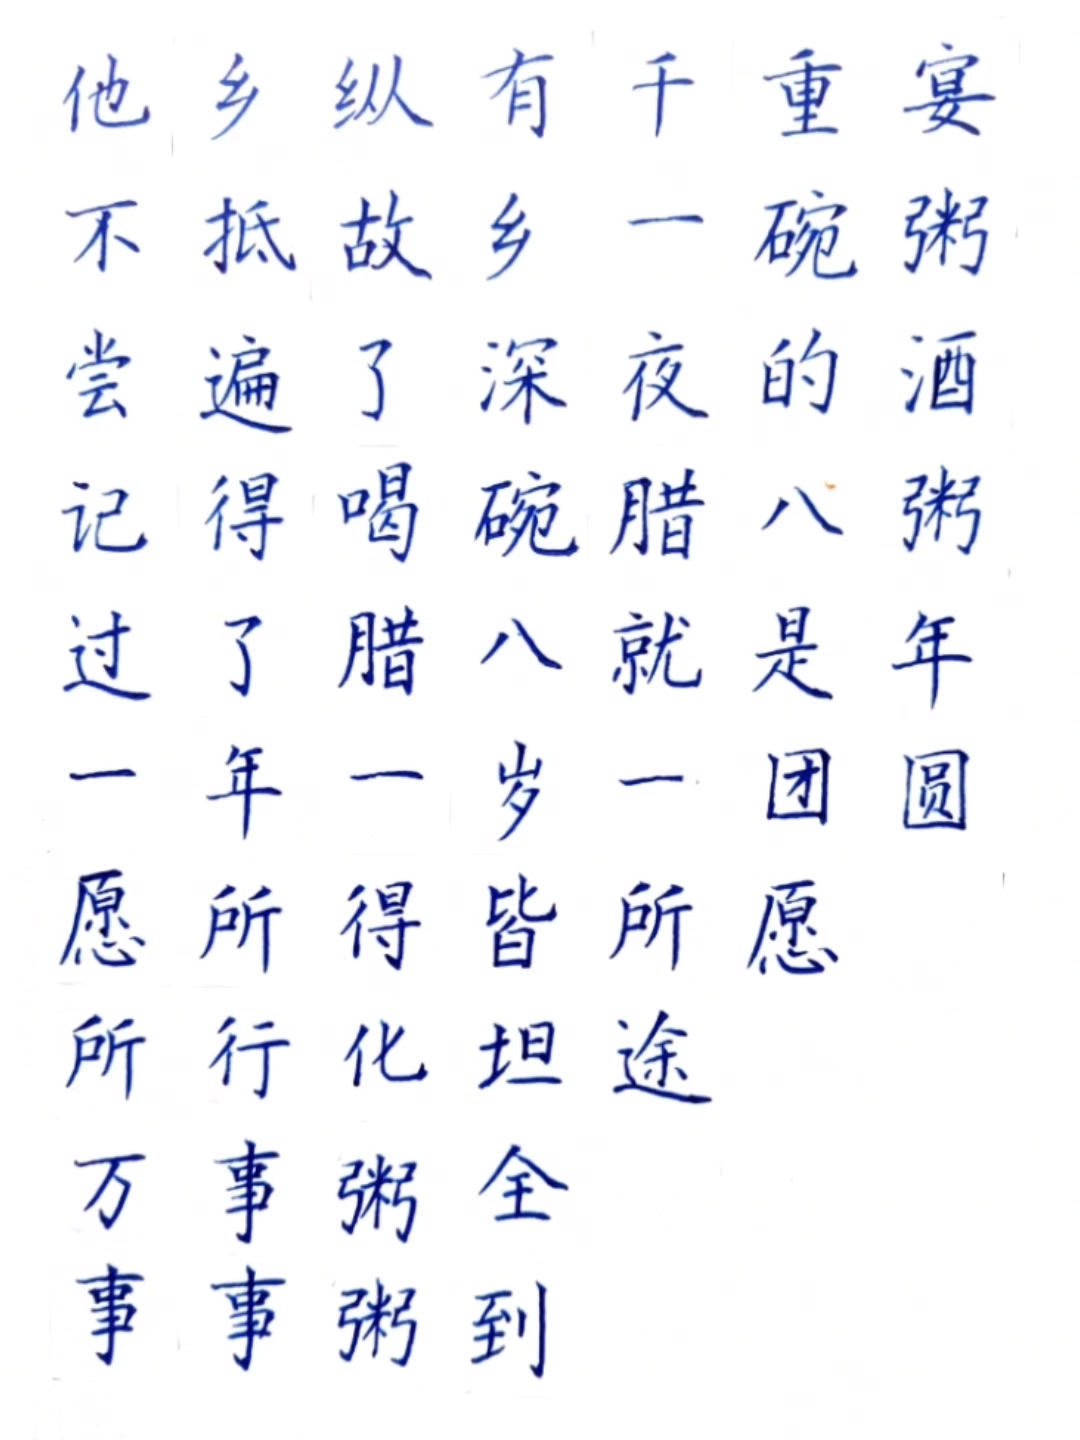 他乡纵有千重宴
不抵故乡一碗粥
尝遍了深夜的酒
记得喝碗腊八粥
过了腊八就是年
一年一岁一团圆
愿所得皆所愿
所行化坦途
万事粥全
事事粥到